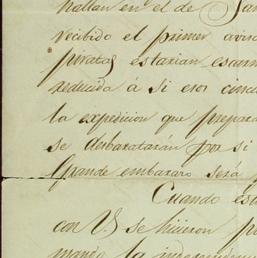 hallan en el de San
recibido el primer aviso
piratas estarian escar
reducida á si esos cinc
la expedicion que prepara
se desbaratarán por si
Grande embarazo será p
Cuando est
con V. se hicieron pr
mando la independenc